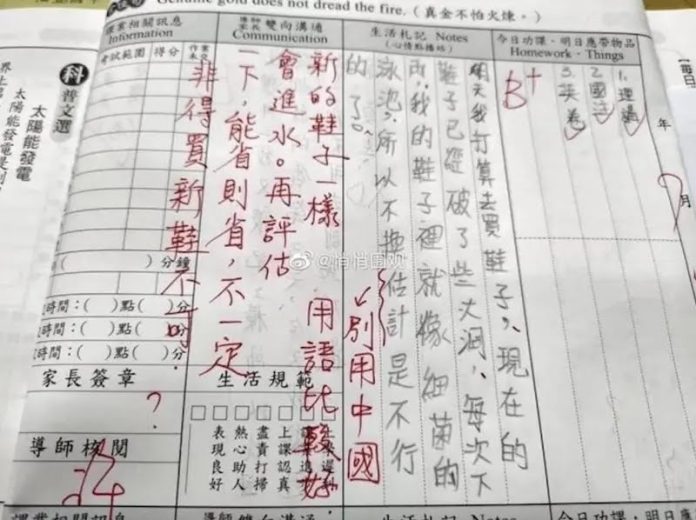 Genuine gold does not dread the fire.（真金不怕火煉。）
今日功課、明日應帶物品
Homework、Things
1.理過
2.國
3.英卷
年
月
生活札記 Notes
（心情點播站）
B+
明天我打算去買鞋子，現在的
鞋子已經破了些大洞，每次下
雨，我的鞋子裡就像細菌的
泳池，所以不換估計是不行
的了。
↙別用中國
用語比較好
導師家長雙向溝通
Communication
新的鞋子一樣
會進水。再評估
一下，能省則省，不一定
非得買新鞋不可。
課業相關訊息
Information
考試範圍
得分
作業未交
（ ）分鐘
時間：（ ）點（ ）分
時間：（ ）點（ ）分
時間：（ ）點（ ）分
家長簽章
？
導師核閱
生活規範
上課認真
盡責打掃
熱心助人
表現良好
科普文選
太陽能發電
太陽能發電是
界上
@悄悄围观
課業相關訊息
導師雙向溝通
生活札記 Notes
今日功課、明日應帶